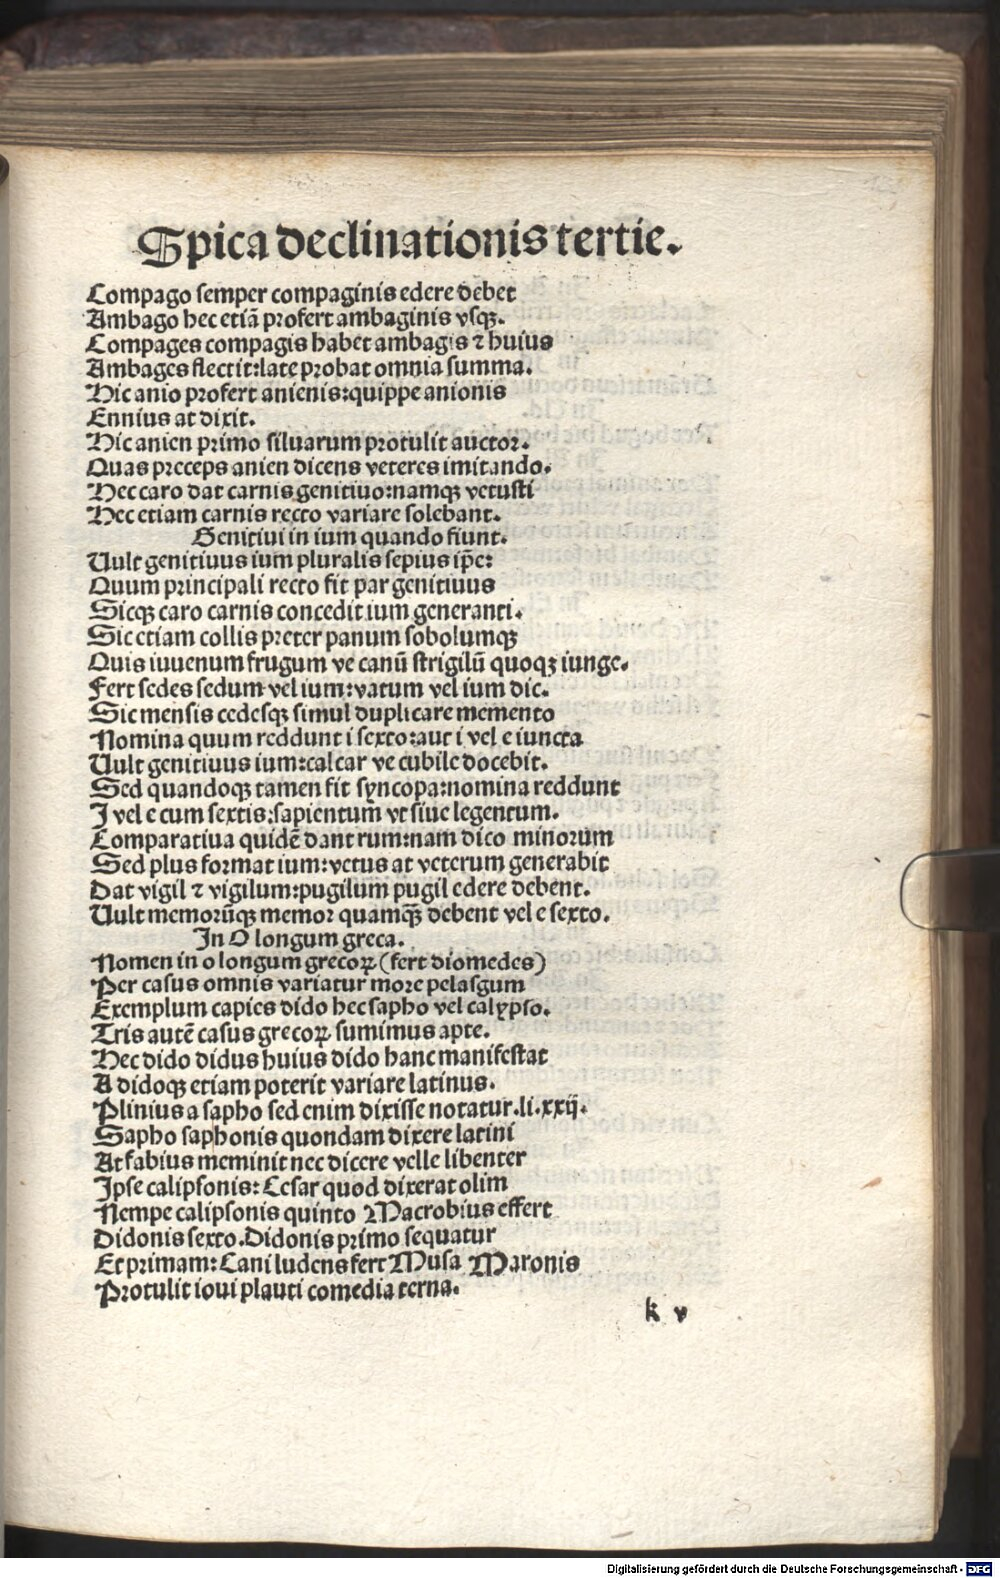 Spica declinationis tertie.
Compago semper compaginis edere debet
Ambago hec etiā profert ambaginis vsqꝫ.
Compages compagis habet ambagis ⁊ huius
Ambages flectit:late probat omnia summa.
Hic anio profert anienis:quippe anionis
Ennius at dixit.
Hic anien primo siluarum protulit auctor.
Quas preceps anien dicens veteres imitando.
Hec caro dat carnis genitiuo:namqꝫ vetusti
Hec etiam carnis recto variare solebant.
Genitiui in ium quando fiunt.
Uult genitiuus ium pluralis sepius ip̄e:
Quum principali recto fit par genitiuus
Sicqꝫ caro carnis concedit ium generanti.
Sic etiam collis preter panum sobolumqꝫ
Quis iuuenum frugum ve canū strigilū quoqꝫ iunge.
Fert sedes sedum vel ium:vatum vel ium dic.
Sic mensis cedesqꝫ simul duplicare memento
Nomina quum reddunt i sexto:aut i vel e iuncta
Uult genitiuus ium:calcar ve cubile docebit.
Sed quandoqꝫ tamen fit syncopa:nomina reddunt
I vel e cum sextis:sapientum vt siue legentum.
Comparatiua quidē dant rum:nam dico minorum
Sed plus format ium:vetus at veterum generabit
Dat vigil ⁊ vigilum:pugilum pugil edere debent.
Uult memorūqꝫ memor quamqꝫ̄ debent vel e sexto.
In O longum greca.
Nomen in o longum grecoꝝ (fert diomedes)
Per casus omnis variatur more pelasgum
Exemplum capies dido hec sapho vel calypso.
Tris autē casus grecoꝝ sumimus apte.
Hec dido didus huius dido hanc manifestat
A didoqꝫ etiam poterit variare latinus.
Plinius a sapho sed enim dixisse notatur.li.xxij.
Sapho saphonis quondam dixere latini
At fabius meminit nec dicere velle libenter
Ipse calipsonis:Cesar quod dixerat olim
Nempe calipsonis quinto Macrobius effert
Didonis sexto.Didonis primo sequatur
Et primam:Cani ludens fert Musa Maronis
Protulit ioui plauti comedia terna.
k v
Digitalisierung gefördert durch die Deutsche Forschungsgemeinschaft - DFG